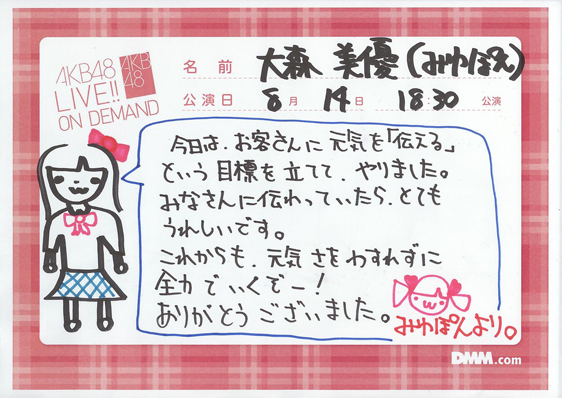 AKB48
LIVE!!
ON DEMAND
AKB
48
名前 大森 美優(みゆぽん)
公演日 8月 14日 18:30 公演
今日は、お客さんに元気を「伝える」
という目標を立てて、やりました。
みなさんに伝わっていたら、とても
うれしいです。
これからも、元気さをわすれずに
全力でいくぞー!
ありがとうございました。
みゆぽんより。
DMM.com